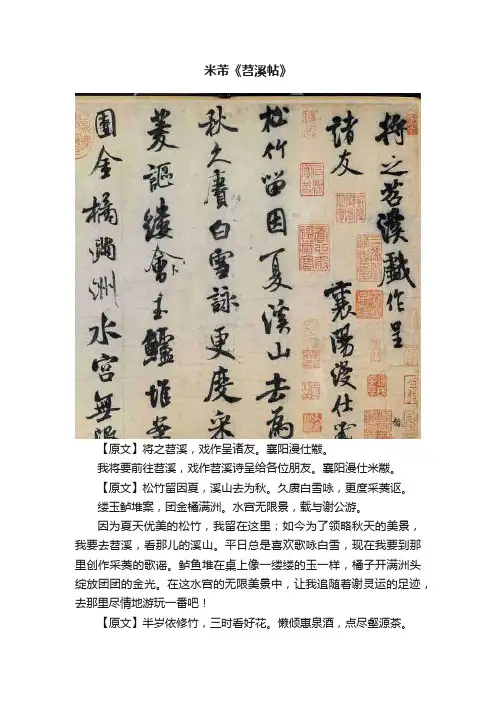 米芾《苕溪帖》
將之苕溪戲作呈
諸友 襄陽漫仕黻
松竹留因夏溪山去為
秋久賡白雪詠更度采
菱謳縷會玉鱸堆案
團金橘滿洲水宮無限
【原文】将之苕溪，戏作呈诸友。襄阳漫仕黻。
我将要前往苕溪，戏作苕溪诗呈给各位朋友。襄阳漫仕米黻。
【原文】松竹留因夏，溪山去为秋。久赓白雪咏，更度采菱讴。
缕玉鲈堆案，团金桶满洲。水宫无限景，载与谢公游。
因为夏天优美的松竹，我留在这里；如今为了领略秋天的美景，
我要去苕溪，看那儿的溪山。平日总是喜欢歌咏白雪，现在我要到那
里创作采菱的歌谣。鲈鱼堆在桌上像一缕缕的玉一样，桶子开满洲头
绽放团团的金光。在这水宫的无限美景中，让我追随着谢灵运的足迹，
去那里尽情地游玩一番吧！
【原文】半岁依修竹，三时看好花。懒倾惠泉酒，点尽壑源茶。